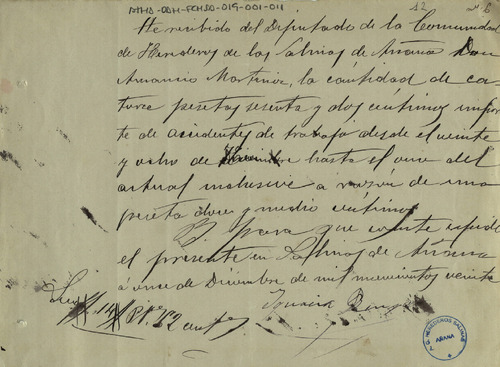 ATHA-DAH-FCHSA-019-001-011
12
Nº 6
He recibido del Diputado de la Comunidad
de Herederos de las Salinas de Añana Don
Amancio Martinez, la cantidad de ca-
torce pesetas sesenta y dos centimos impor-
te de accidentes de trabajo desde el veinte
y ocho de hasta el once del
actual inclusive a razón de una
peseta doce y medio centimos.
Y para que conste espido
el presente en Salinas de Añana
á once de Diciembre de mil novecientos veinte
Ignacio
14 Ptas 62 centos
HEREDEROS SALINAS
AÑANA